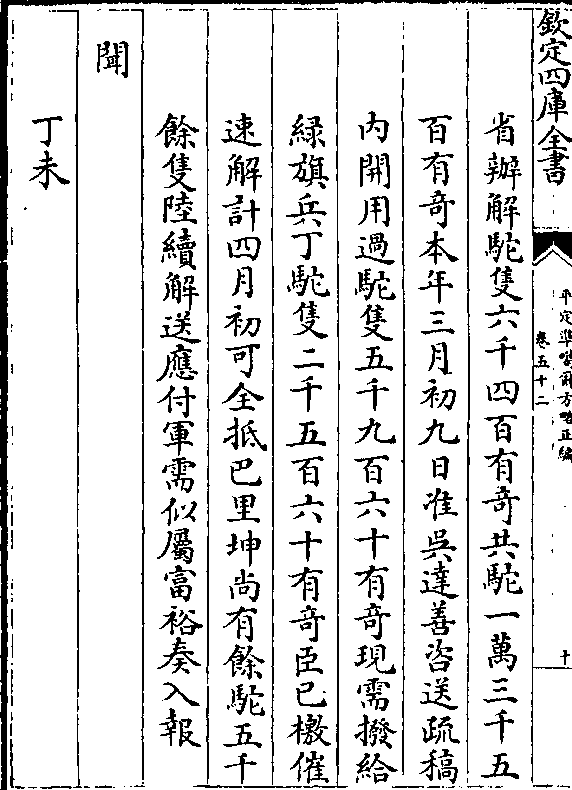 欽定四庫全書
平定準噶爾方略正編
卷五十二
十
省辦解駝隻六千四百有奇共駝一萬三千五
百有奇本年三月初九日准吳達善咨送疏稿
内開用過駝隻五千九百六十有奇現需撥給
緑旗兵丁駝隻二千五百六十有奇臣已檄催
速解計四月初可全抵巴里坤尚有餘駝五千
餘隻陸續解送應付軍需似屬富裕奏入報
聞
丁未